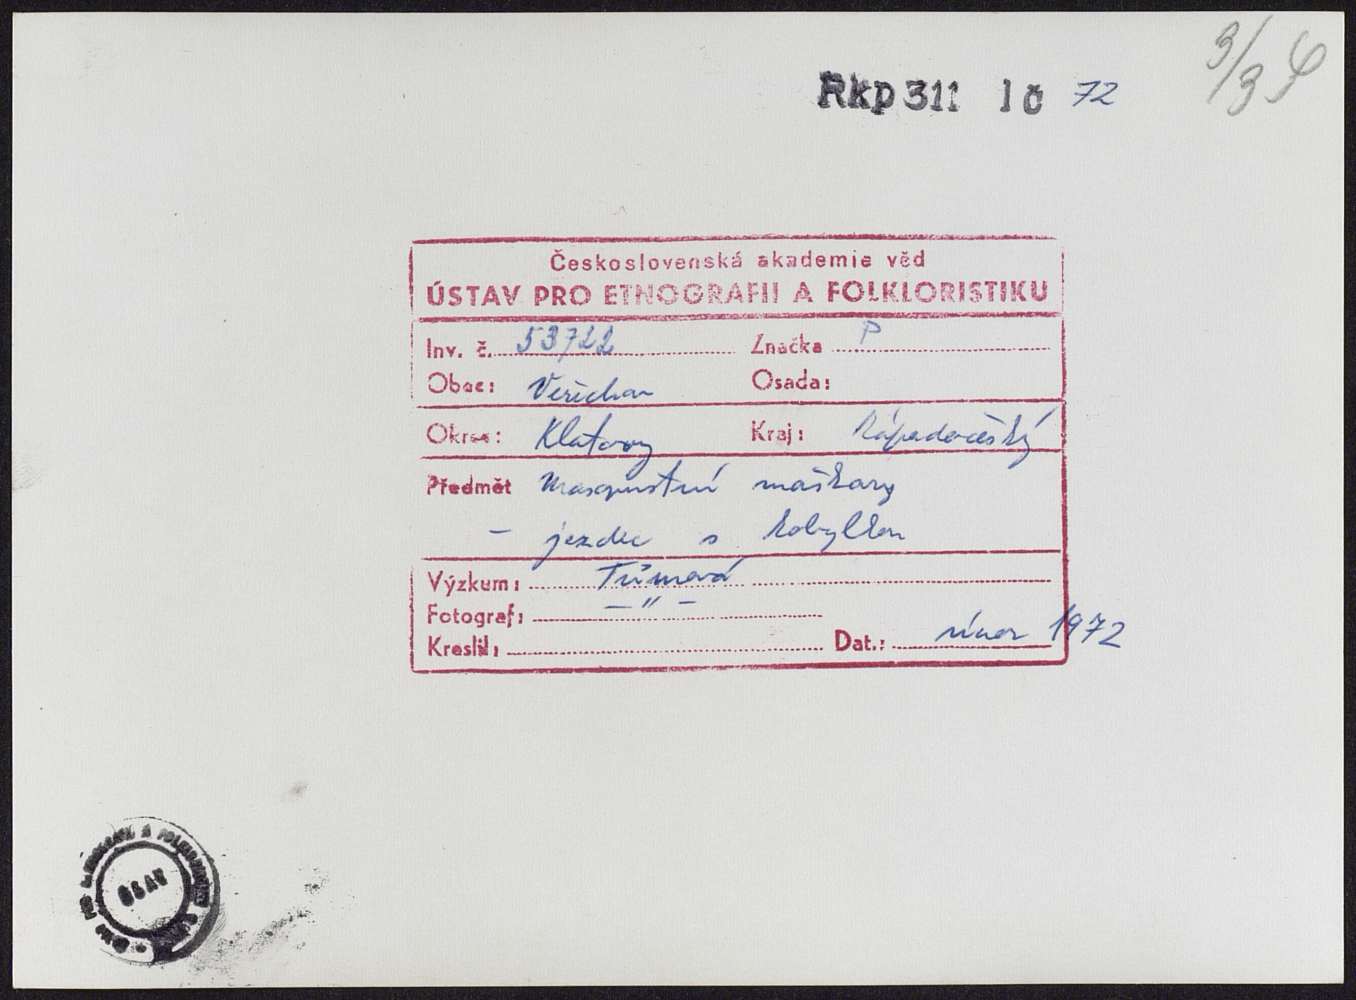 3/3
Rkp 311 lč 72
Československá akademie věd
ÚSTAV PRO ETNOGRAFII A FOLKLORISTIKU
Inv. č. 53722 Značka P
Obec: Osada:
Okres: Klatovy Kraj: Západočeský
Předmět Masopustní maškary
– jezdec s kobylkou
Výzkum: Tůmová
Fotograf: —"—
Kreslil: Dat.: únor 1972
ČSAV